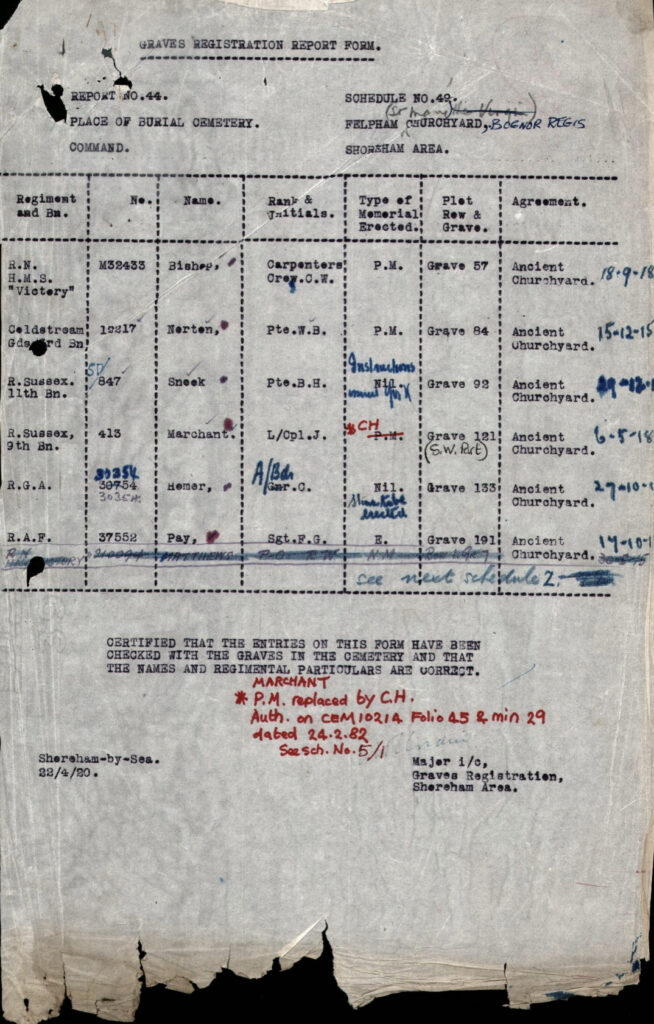 GRAVES REGISTRATION REPORT FORM.
REPORT NO.44. SCHEDULE NO.49.
(St Mary the Virgin)
PLACE OF BURIAL CEMETERY. FELPHAM CHURCHYARD, BOGNOR REGIS
COMMAND. SHOREHAM AREA.
Regiment and Bn. No. Name. Rank & Initials. Type of Memorial Erected. Plot Row & Grave. Agreement.
R.N. M32433 Bishop, Carpenters P.M. Grave 57 Ancient 18-9-18
H.M.S. Crew.C.W. Churchyard.
"Victory"
Coldstream 19217 Norton, Pte.W.B. P.M. Grave 84 Ancient 15-12-15
Gds 3rd Bn Churchyard.
SD Instructions
R.Sussex. 847 Snook Pte.B.H. Nil. Grave 92 Ancient
11th Bn. Churchyard.
* CH
R.Sussex, 413 Marchant. L/Cpl.J. P.M. Grave 121 Ancient 6-5-18
9th Bn. (S.W. Part) Churchyard.
30354 A/Bdr
R.G.A. 30754 Homer, Gnr.C. Nil. Grave 133 Ancient 27-10-1
30354 Churchyard.
erected
R.A.F. 37552 Pay, Sgt.F.G. E. Grave 191 Ancient 17-10-1
Churchyard.
R.N. MATTHEWS
VICTORY
see next schedule 2.
CERTIFIED THAT THE ENTRIES ON THIS FORM HAVE BEEN
CHECKED WITH THE GRAVES IN THE CEMETERY AND THAT
THE NAMES AND REGIMENTAL PARTICULARS ARE CORRECT.
MARCHANT
* P.M. replaced by C.H.
Auth. on CEM 10214 Folio 45 & min 29
dated 24.2.82
See sch. No. 5/1
Shoreham-by-Sea. Major i/c,
22/4/20. Graves Registration,
Shoreham Area.